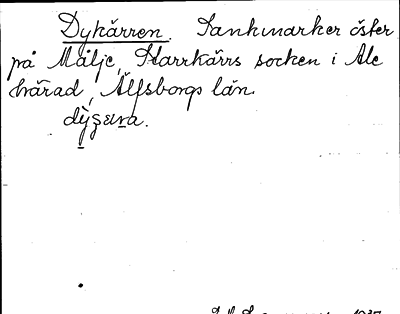 Dykärren. Sankmarker öster
på Målje, Starrkärrs socken i Ale
härad, Älfsborgs län.